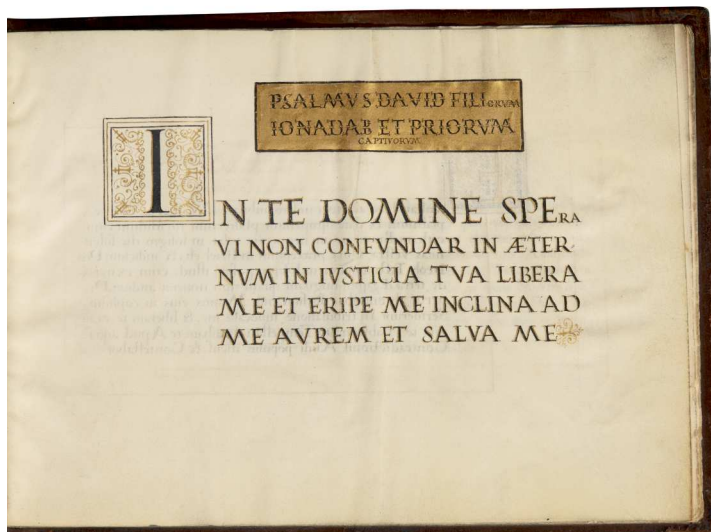 PSALMVS DAVID FILIORVM
IONADAB ET PRIORVM
CAPTIVORVM
IN TE DOMINE SPERA
VI NON CONFVNDAR IN ÆTER-
NVM IN IVSTICIA TVA LIBERA
ME ET ERIPE ME INCLINA AD
ME AVREM ET SALVA ME